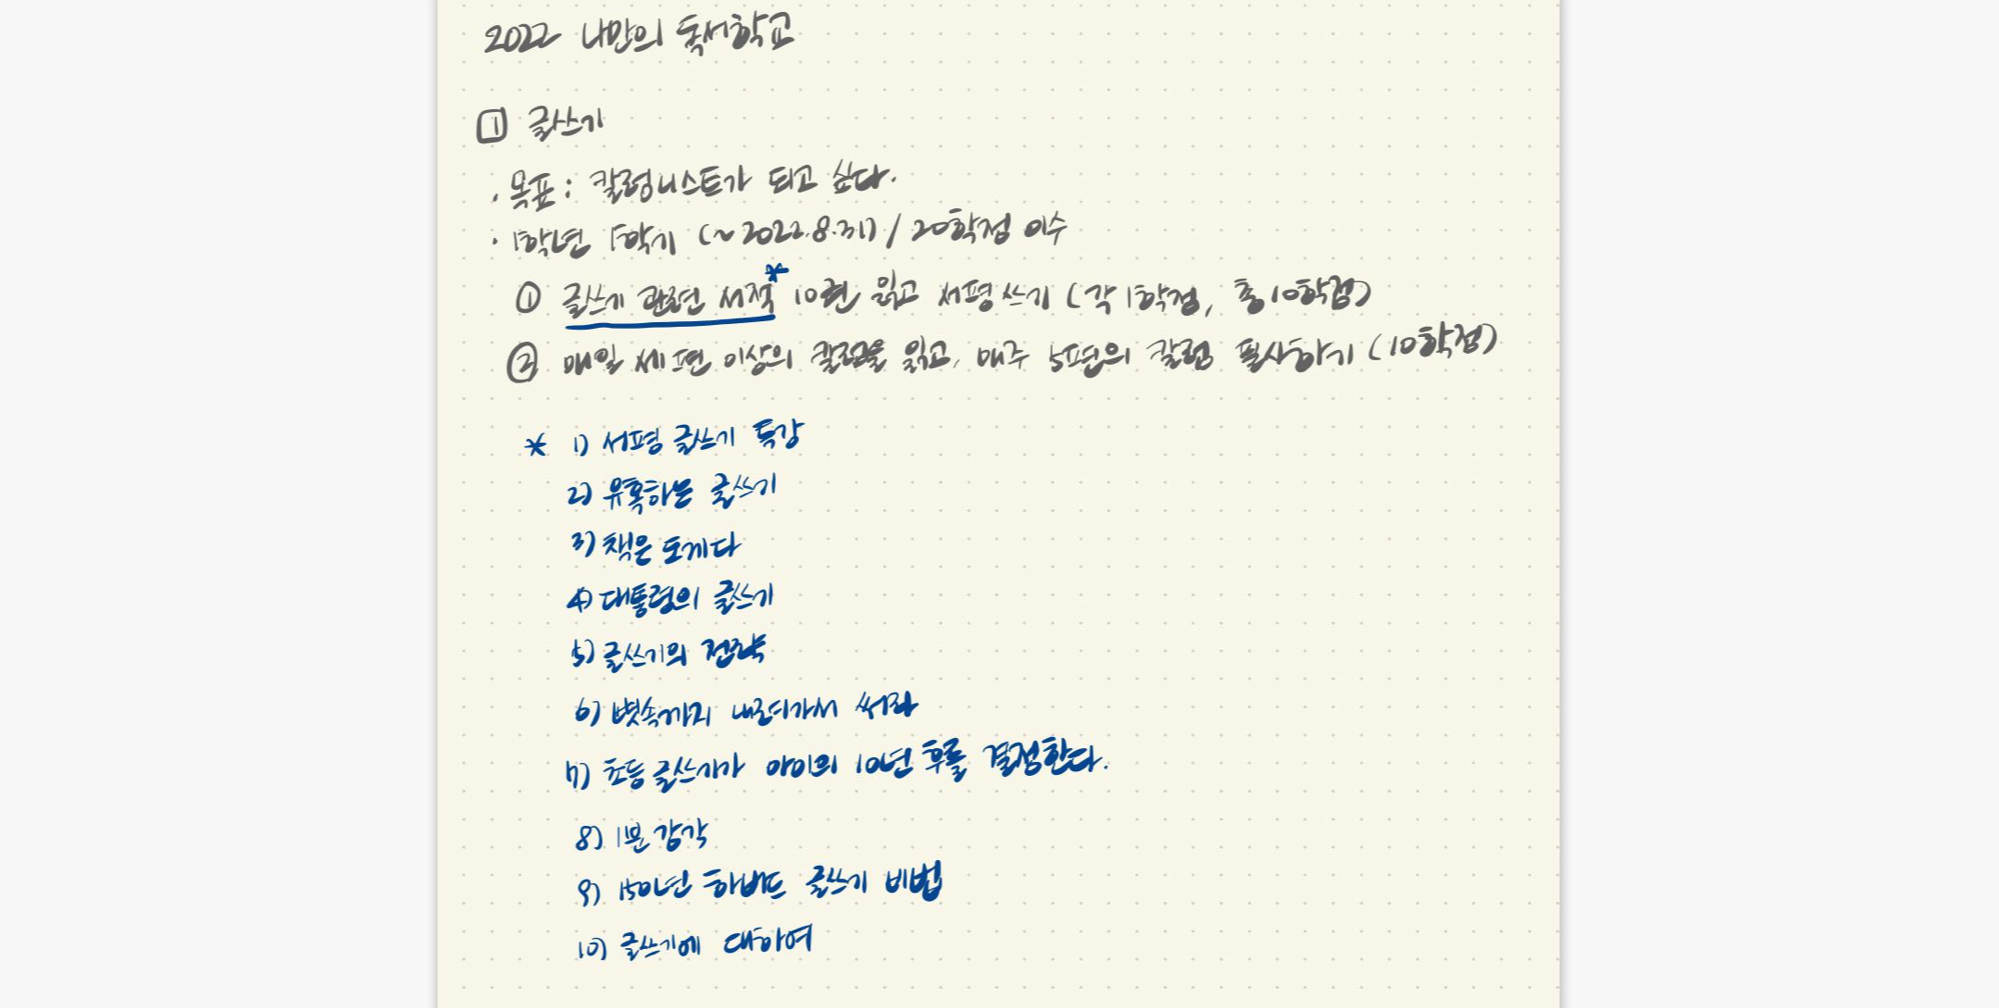 2022 나만의 독서학교
1 글쓰기
· 목표 : 칼럼니스트가 되고 싶다.
· 1학년 1학기 (~2022.8.31) / 20학점 이수
① 글쓰기 관련 서적* 10권 읽고 서평 쓰기 (각 1학점, 총 10학점)
② 매일 세 편 이상의 칼럼을 읽고, 매주 5편의 칼럼 필사하기 (10학점)
* 1) 서평 글쓰기 특강
2) 유혹하는 글쓰기
3) 책은 도끼다
4) 대통령의 글쓰기
5) 글쓰기의 전략
6) 뼛속까지 내려가서 써라
7) 초등 글쓰기가 아이의 10년 후를 결정한다.
8) 1분 감각
9) 150년 하버드 글쓰기 비법
10) 글쓰기에 대하여